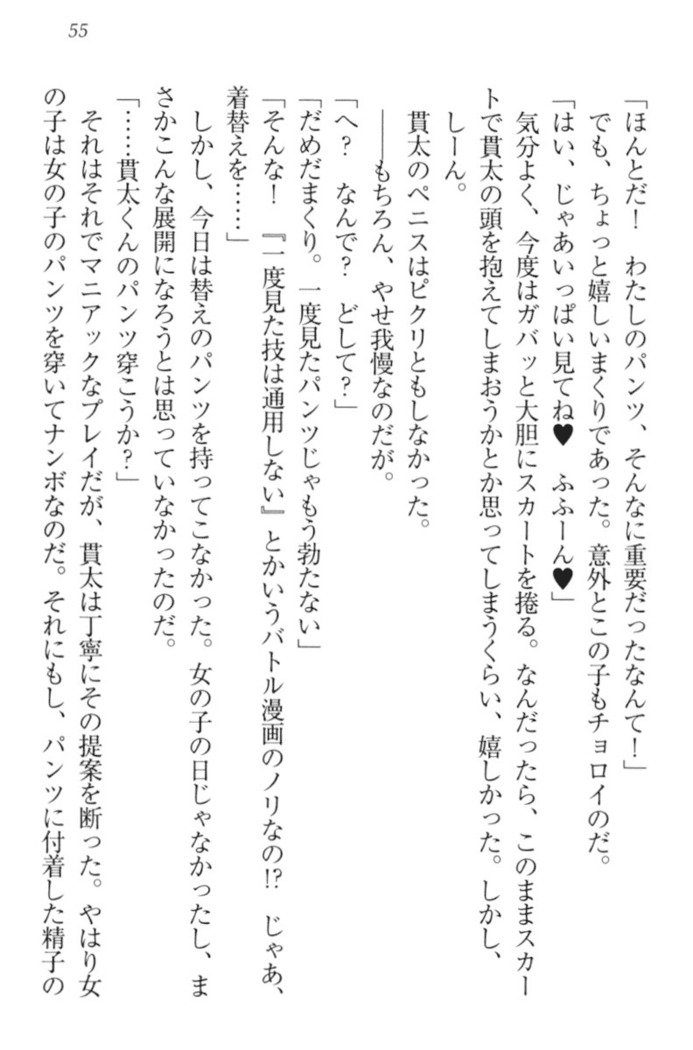 55
「ほんとだ！　わたしのパンツ、そんなに重要だったなんて！」
でも、ちょっと嬉しいまくりであった。意外とこの子もチョロイのだ。
「はい、じゃあいっぱい見てね♥　ふふーん♥」
気分よく、今度はガバッと大胆にスカートを捲る。なんだったら、このままスカー
トで貫太の頭を抱えてしまおうかとか思ってしまうくらい、嬉しかった。しかし、
しーん。
貫太のペニスはピクリともしなかった。
――もちろん、やせ我慢なのだが。
「へ？　なんで？　どして？」
「だめだまくり。一度見たパンツじゃもう勃たない」
「そんな！　『一度見た技は通用しない』とかいうバトル漫画のノリなの!?　じゃあ、
着替えを……」
しかし、今日は替えのパンツを持ってこなかった。女の子の日じゃなかったし、ま
さかこんな展開になろうとは思っていなかったのだ。
「……貫太くんのパンツ穿こうか？」
それはそれでマニアックなプレイだが、貫太は丁寧にその提案を断った。やはり女
の子は女の子のパンツを穿いてナンボなのだ。それにもし、パンツに付着した精子の